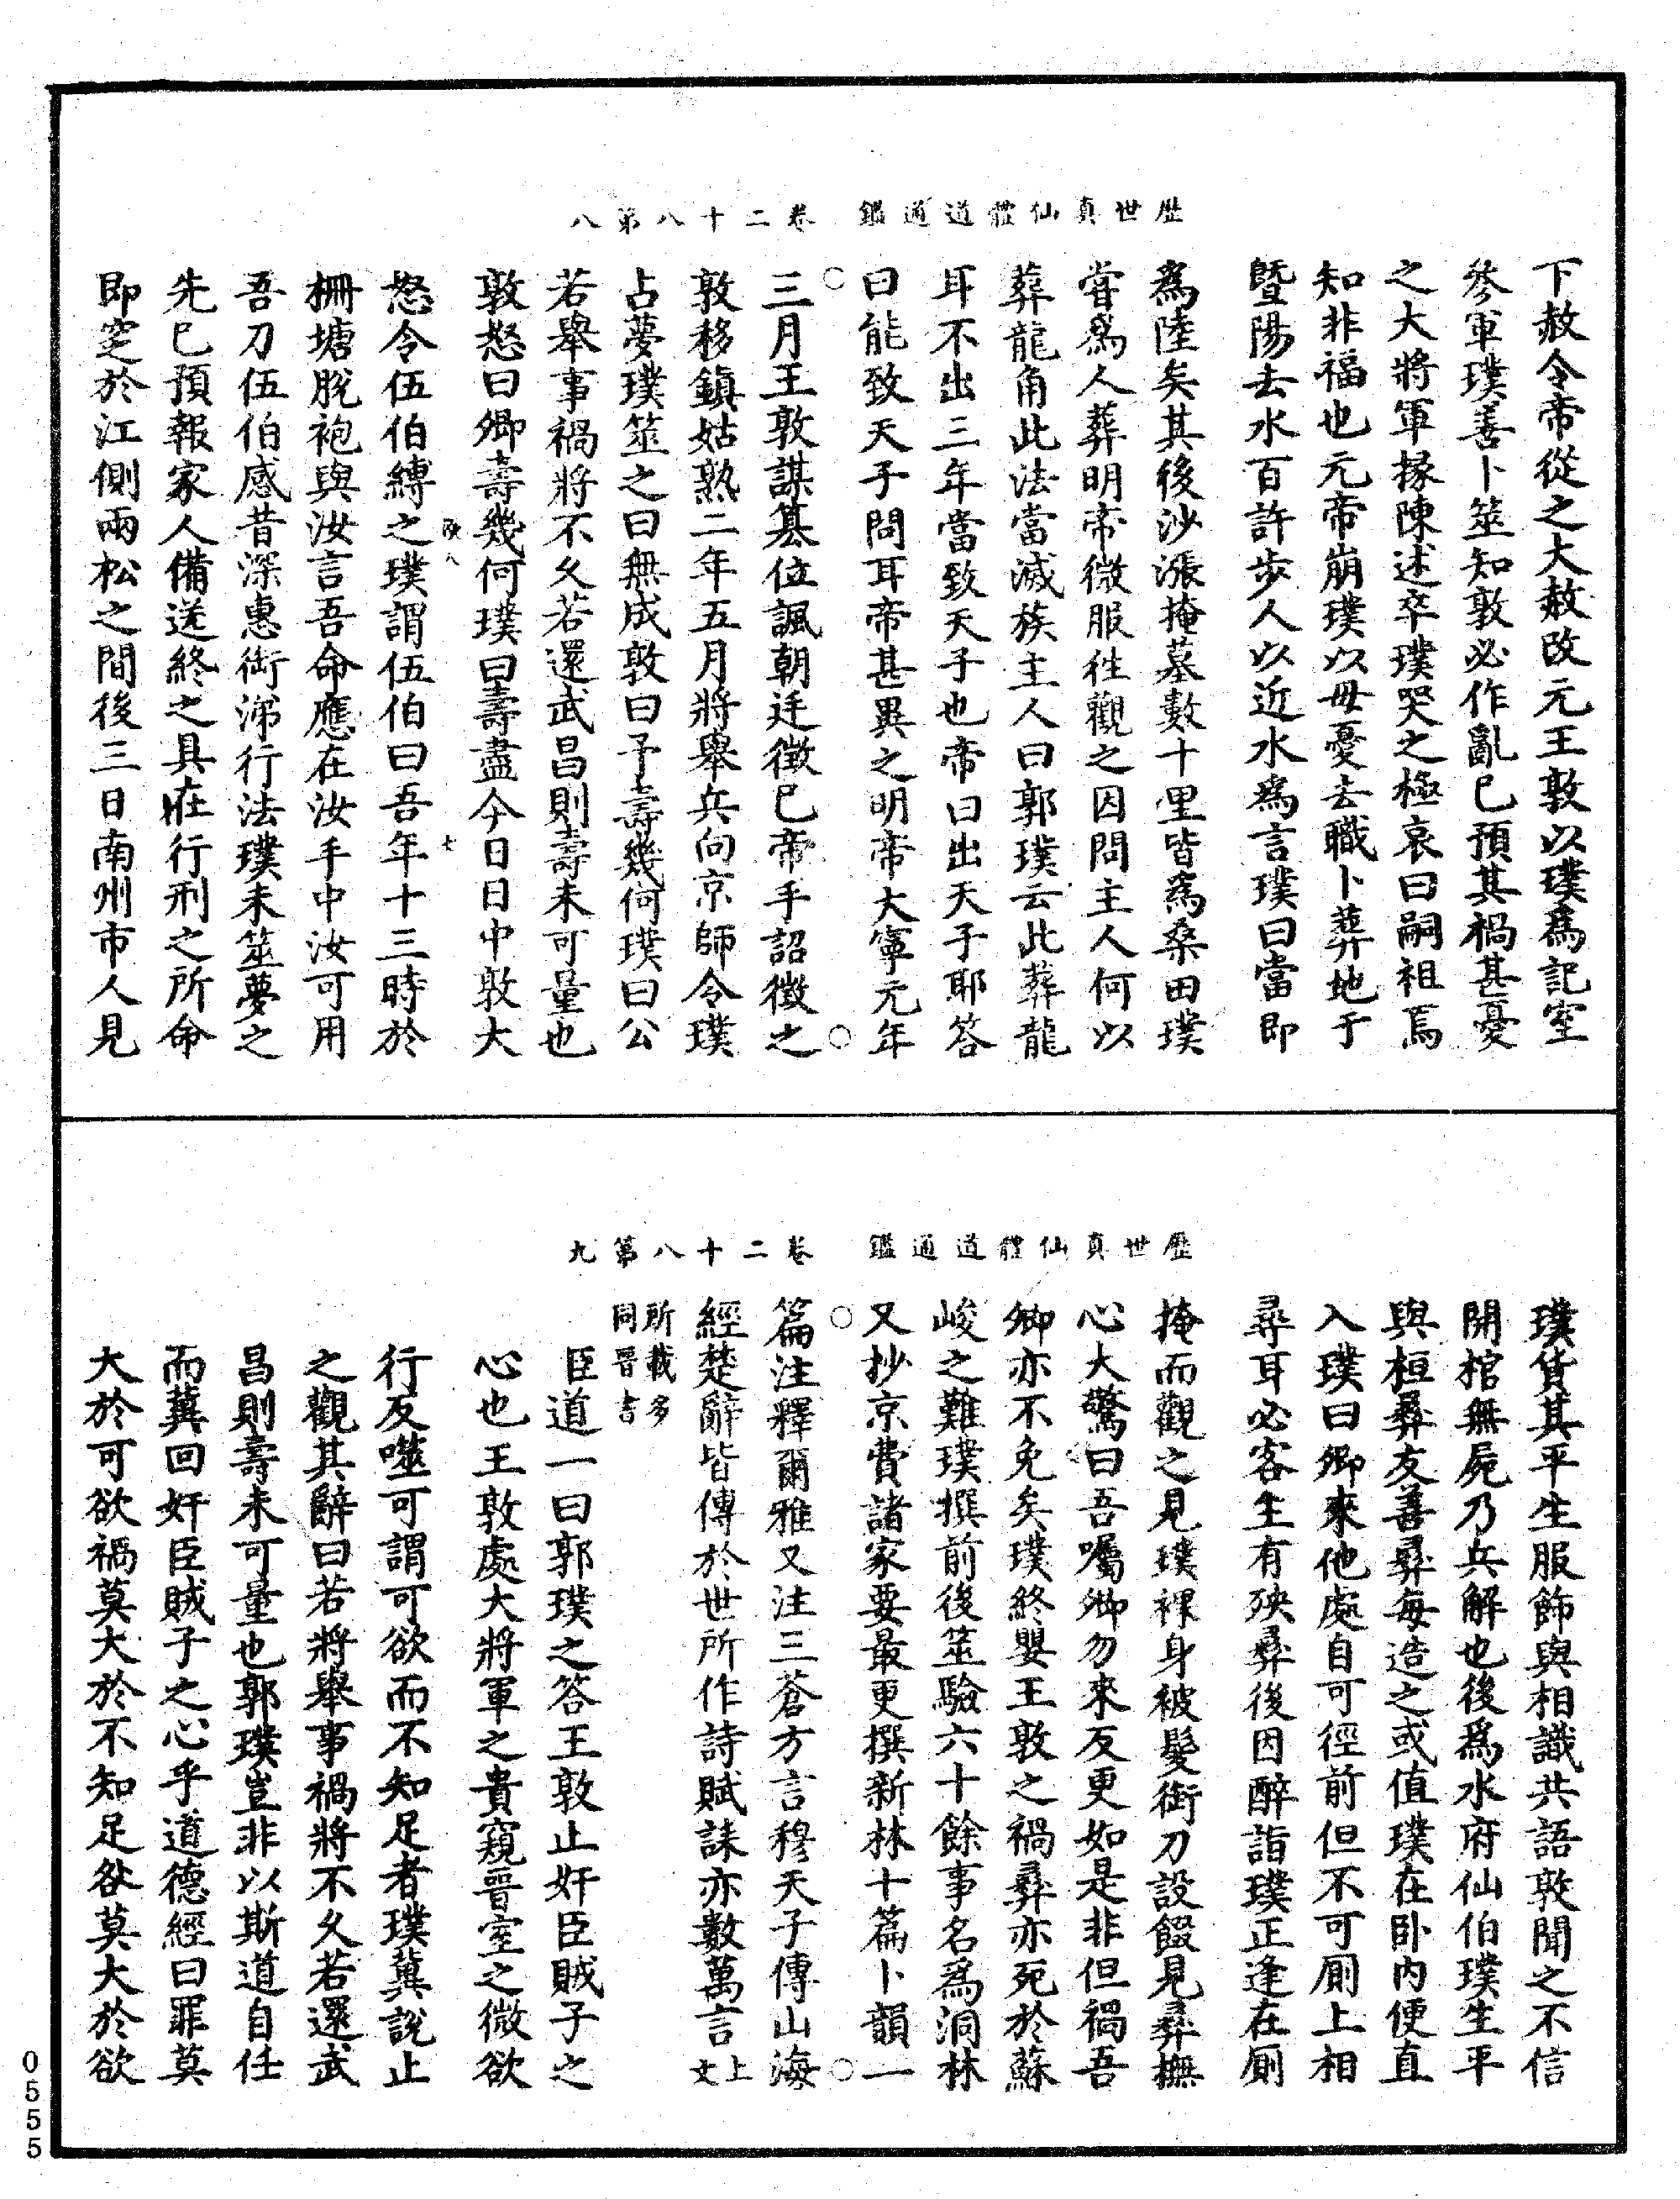 歷世真仙體道通鑑　卷二十八第八
下赦令帝從之大赦改元王敦以璞爲記室
參軍璞善卜筮知敦必作亂已預其禍甚憂
之大將軍掾陳述卒璞哭之極哀曰嗣祖焉
知非福也元帝崩璞以毋憂去職卜葬地于
暨陽去水百許步人以近水爲言璞曰當即
爲陸矣其後沙漲掩墓數十里皆爲桑田璞
嘗爲人葬明帝微服徃觀之因問主人何以
葬龍角此法當滅族主人曰郭璞云此葬龍
耳不出三年當致天子也帝曰出天子耶答
曰能致天子問耳帝甚異之明帝大寧元年
三月王敦謀篡位諷朝廷徵已帝手詔徵之
敦移鎮姑熟二年五月將舉兵向京師令璞
占夢璞筮之曰無成敦曰予壽幾何璞曰公
若舉事禍將不久若還武昌則壽未可量也
敦怒曰卿壽幾何璞曰壽盡今日日中敦大
怒令伍伯縛之璞謂伍伯曰吾年十三時於
柵塘脫袍與汝言吾命應在汝手中汝可用
吾刀伍伯感昔深惠銜涕行法璞未筮夢之
先已預報家人備送終之具在行刑之所命
即窆於江側兩松之間後三日南州市人見
七
歷世真仙體道通鑑　卷二十八第九
璞貨其平生服飾與相識共語敦聞之不信
開棺無屍乃兵解也後爲水府仙伯璞生平
與桓彝友善彝每造之或值璞在卧内便直
入璞曰卿來他處自可徑前但不可厠上相
尋耳必客主有殃彝後因醉詣璞正逢在厠
掩而觀之見璞裸身被髮銜刀設餟見彝撫
心大驚曰吾囑卿勿來反更如是非但禍吾
卿亦不免矣璞終嬰王敦之禍彝亦死於蘇
峻之難璞撰前後筮驗六十餘事名爲洞林
又抄京費諸家要最更撰新林十篇卜韻一
篇注釋爾雅又注三蒼方言穆天子傳山海
經楚辭皆傳於世所作詩賦誄亦數萬言上文
所載多同晉書
臣道一曰郭璞之答王敦止奸臣賊子之
心也王敦處大將軍之貴窺晉室之微欲
行反噬可謂可欲而不知足者璞冀說止
之觀其辭曰若將舉事禍將不久若還武
昌則壽未可量也郭璞豈非以斯道自任
而冀回奸臣賊子之心乎道德經曰罪莫
大於可欲禍莫大於不知足咎莫大於欲
0555